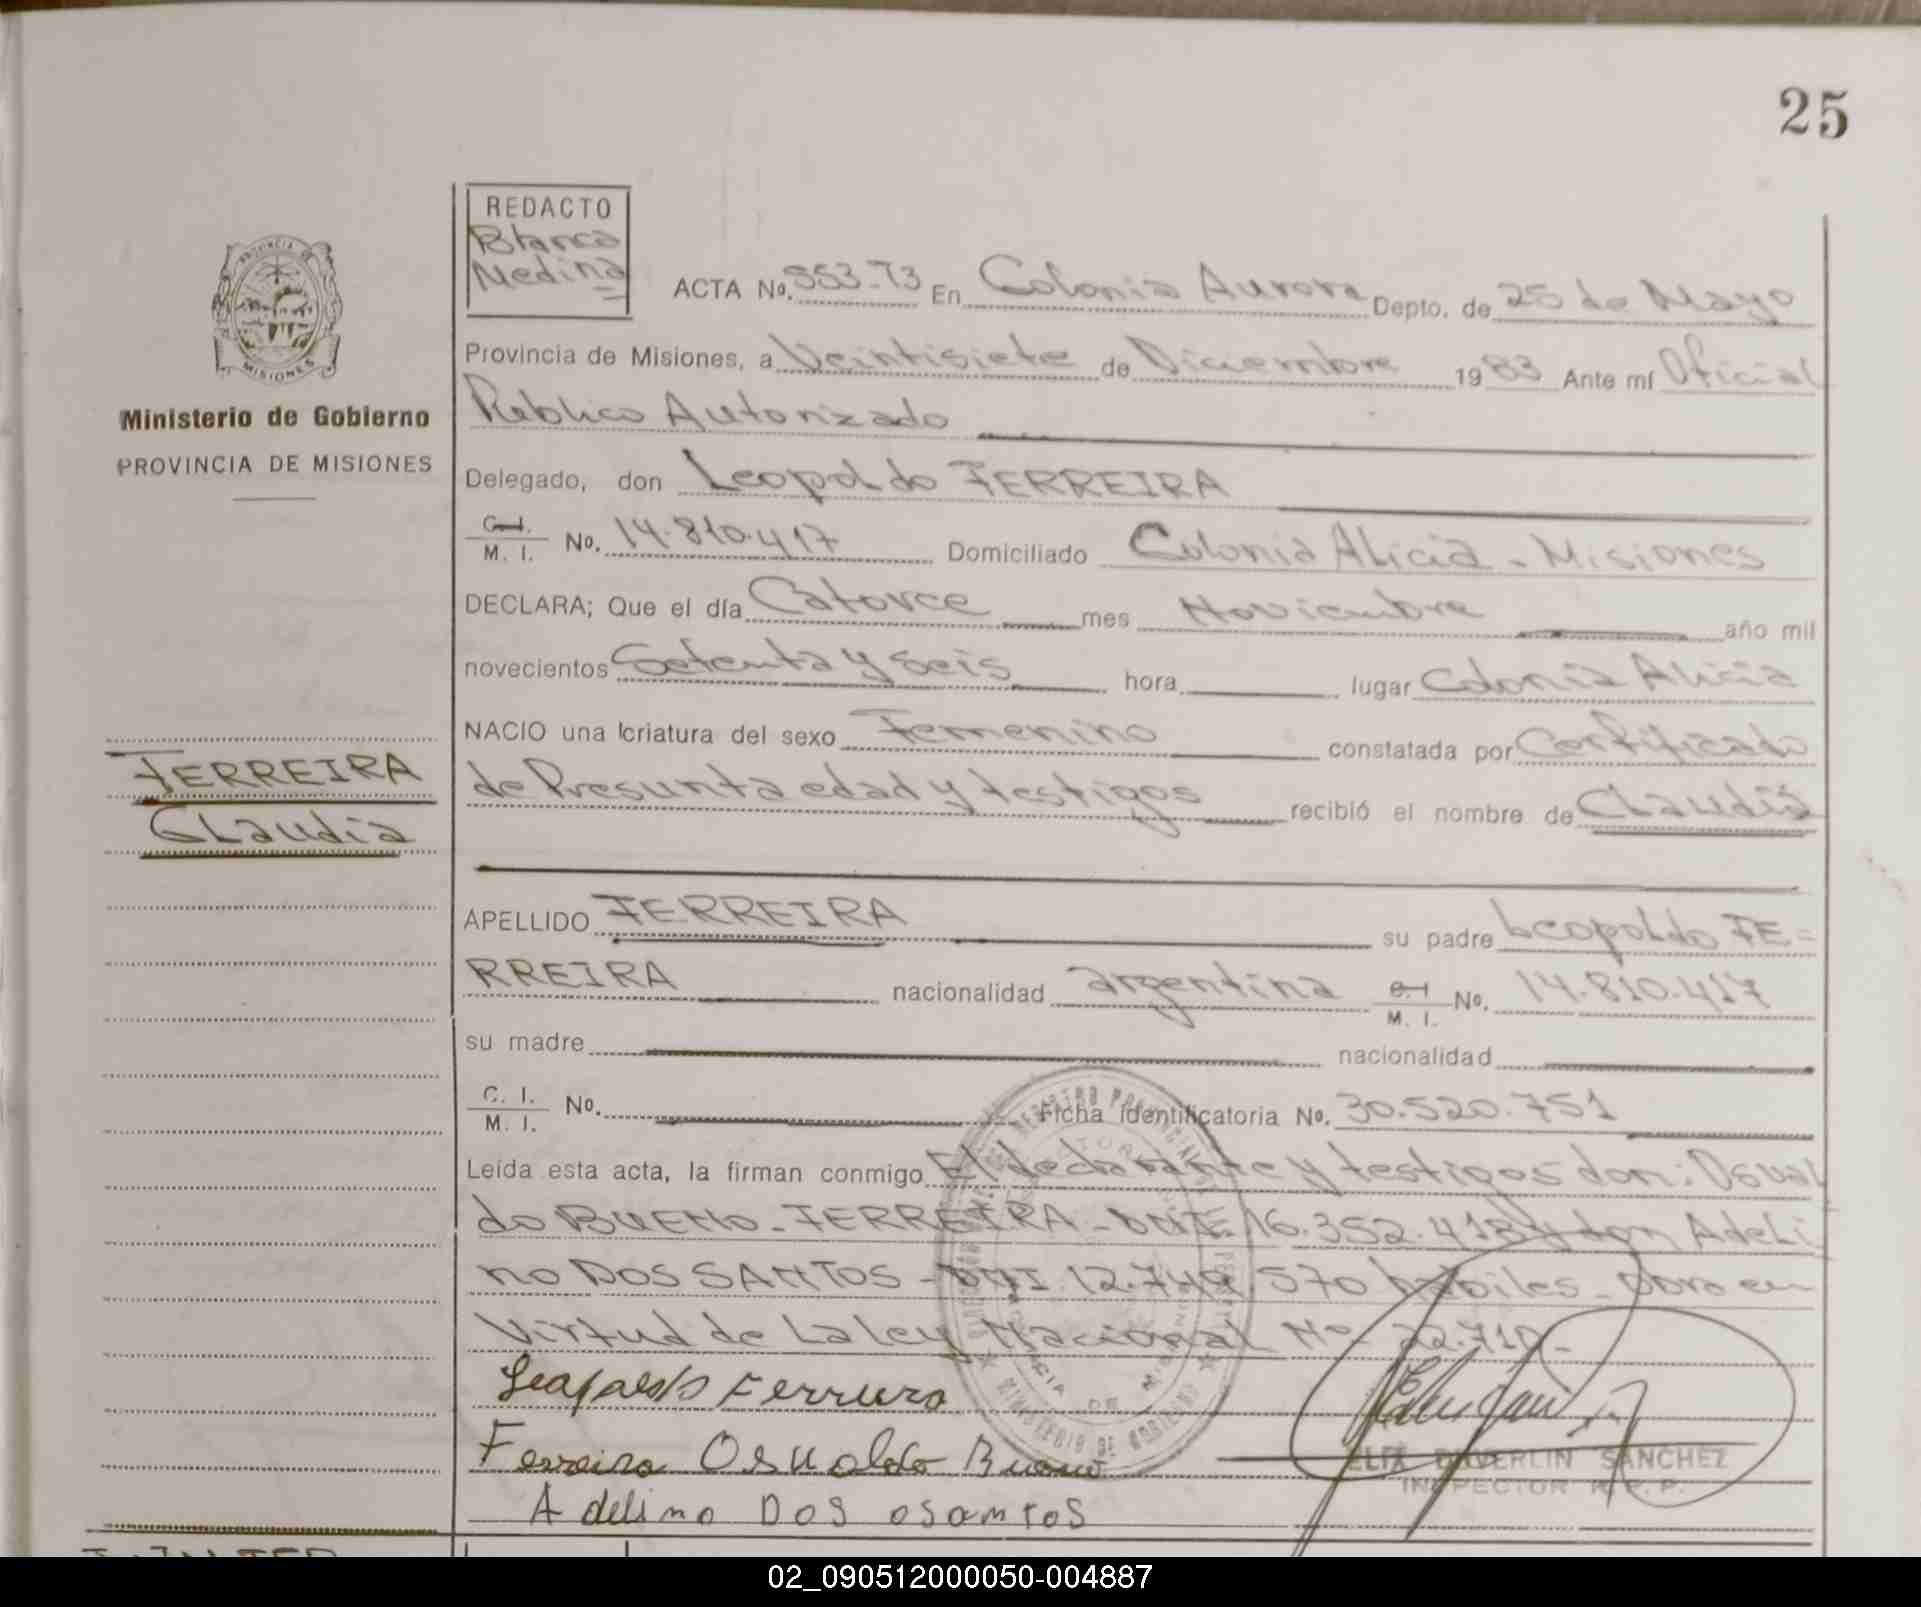 25
REDACTO
Blanca
Medina
ACTA No. 553-T3 En Colonia Aurora Depto. de 25 de Mayo
Provincia de Misiones, a Veintisiete de Diciembre 1983 Ante mí Oficial
Público Autorizado
MISIONES
Ministerio de Gobierno
PROVINCIA DE MISIONES
Delegado, don Leopoldo FERREIRA
C. I. / M. I. No. 14.810.417 Domiciliado Colonia Alicia - Misiones
DECLARA; Que el día Catorce mes Noviembre año mil
novecientos Setenta y seis hora lugar Colonia Alicia
NACIO una criatura del sexo Femenino constatada por Certificado
de Presunta edad y testigos recibió el nombre de Claudia
FERREIRA
Claudia
APELLIDO FERREIRA su padre Leopoldo FE=
RREIRA nacionalidad argentina C. I. / M. I. No. 14.810.417
su madre nacionalidad
C. I. / M. I. No. Ficha identificatoria No. 30.520.751
Leída esta acta, la firman conmigo El declarante y testigos don: Osval
do BUENO - FERREIRA - DNI: 16.352.418 y don Adeli
no DOS SANTOS - DNI 12.749.570 habiles - obra en
Virtud de La Ley Nacional Nº 22.710 -
Leopoldo Ferreira
Ferreira Osvaldo Bueno
Adelino Dos osantos
SANCHEZ
INSPECTOR R. P. P.
02_090512000050-004887